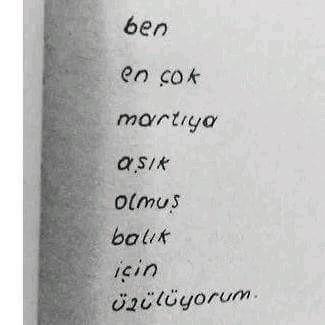 ben
en çok
martıya
aşık
olmuş
balık
için
üzülüyorum.